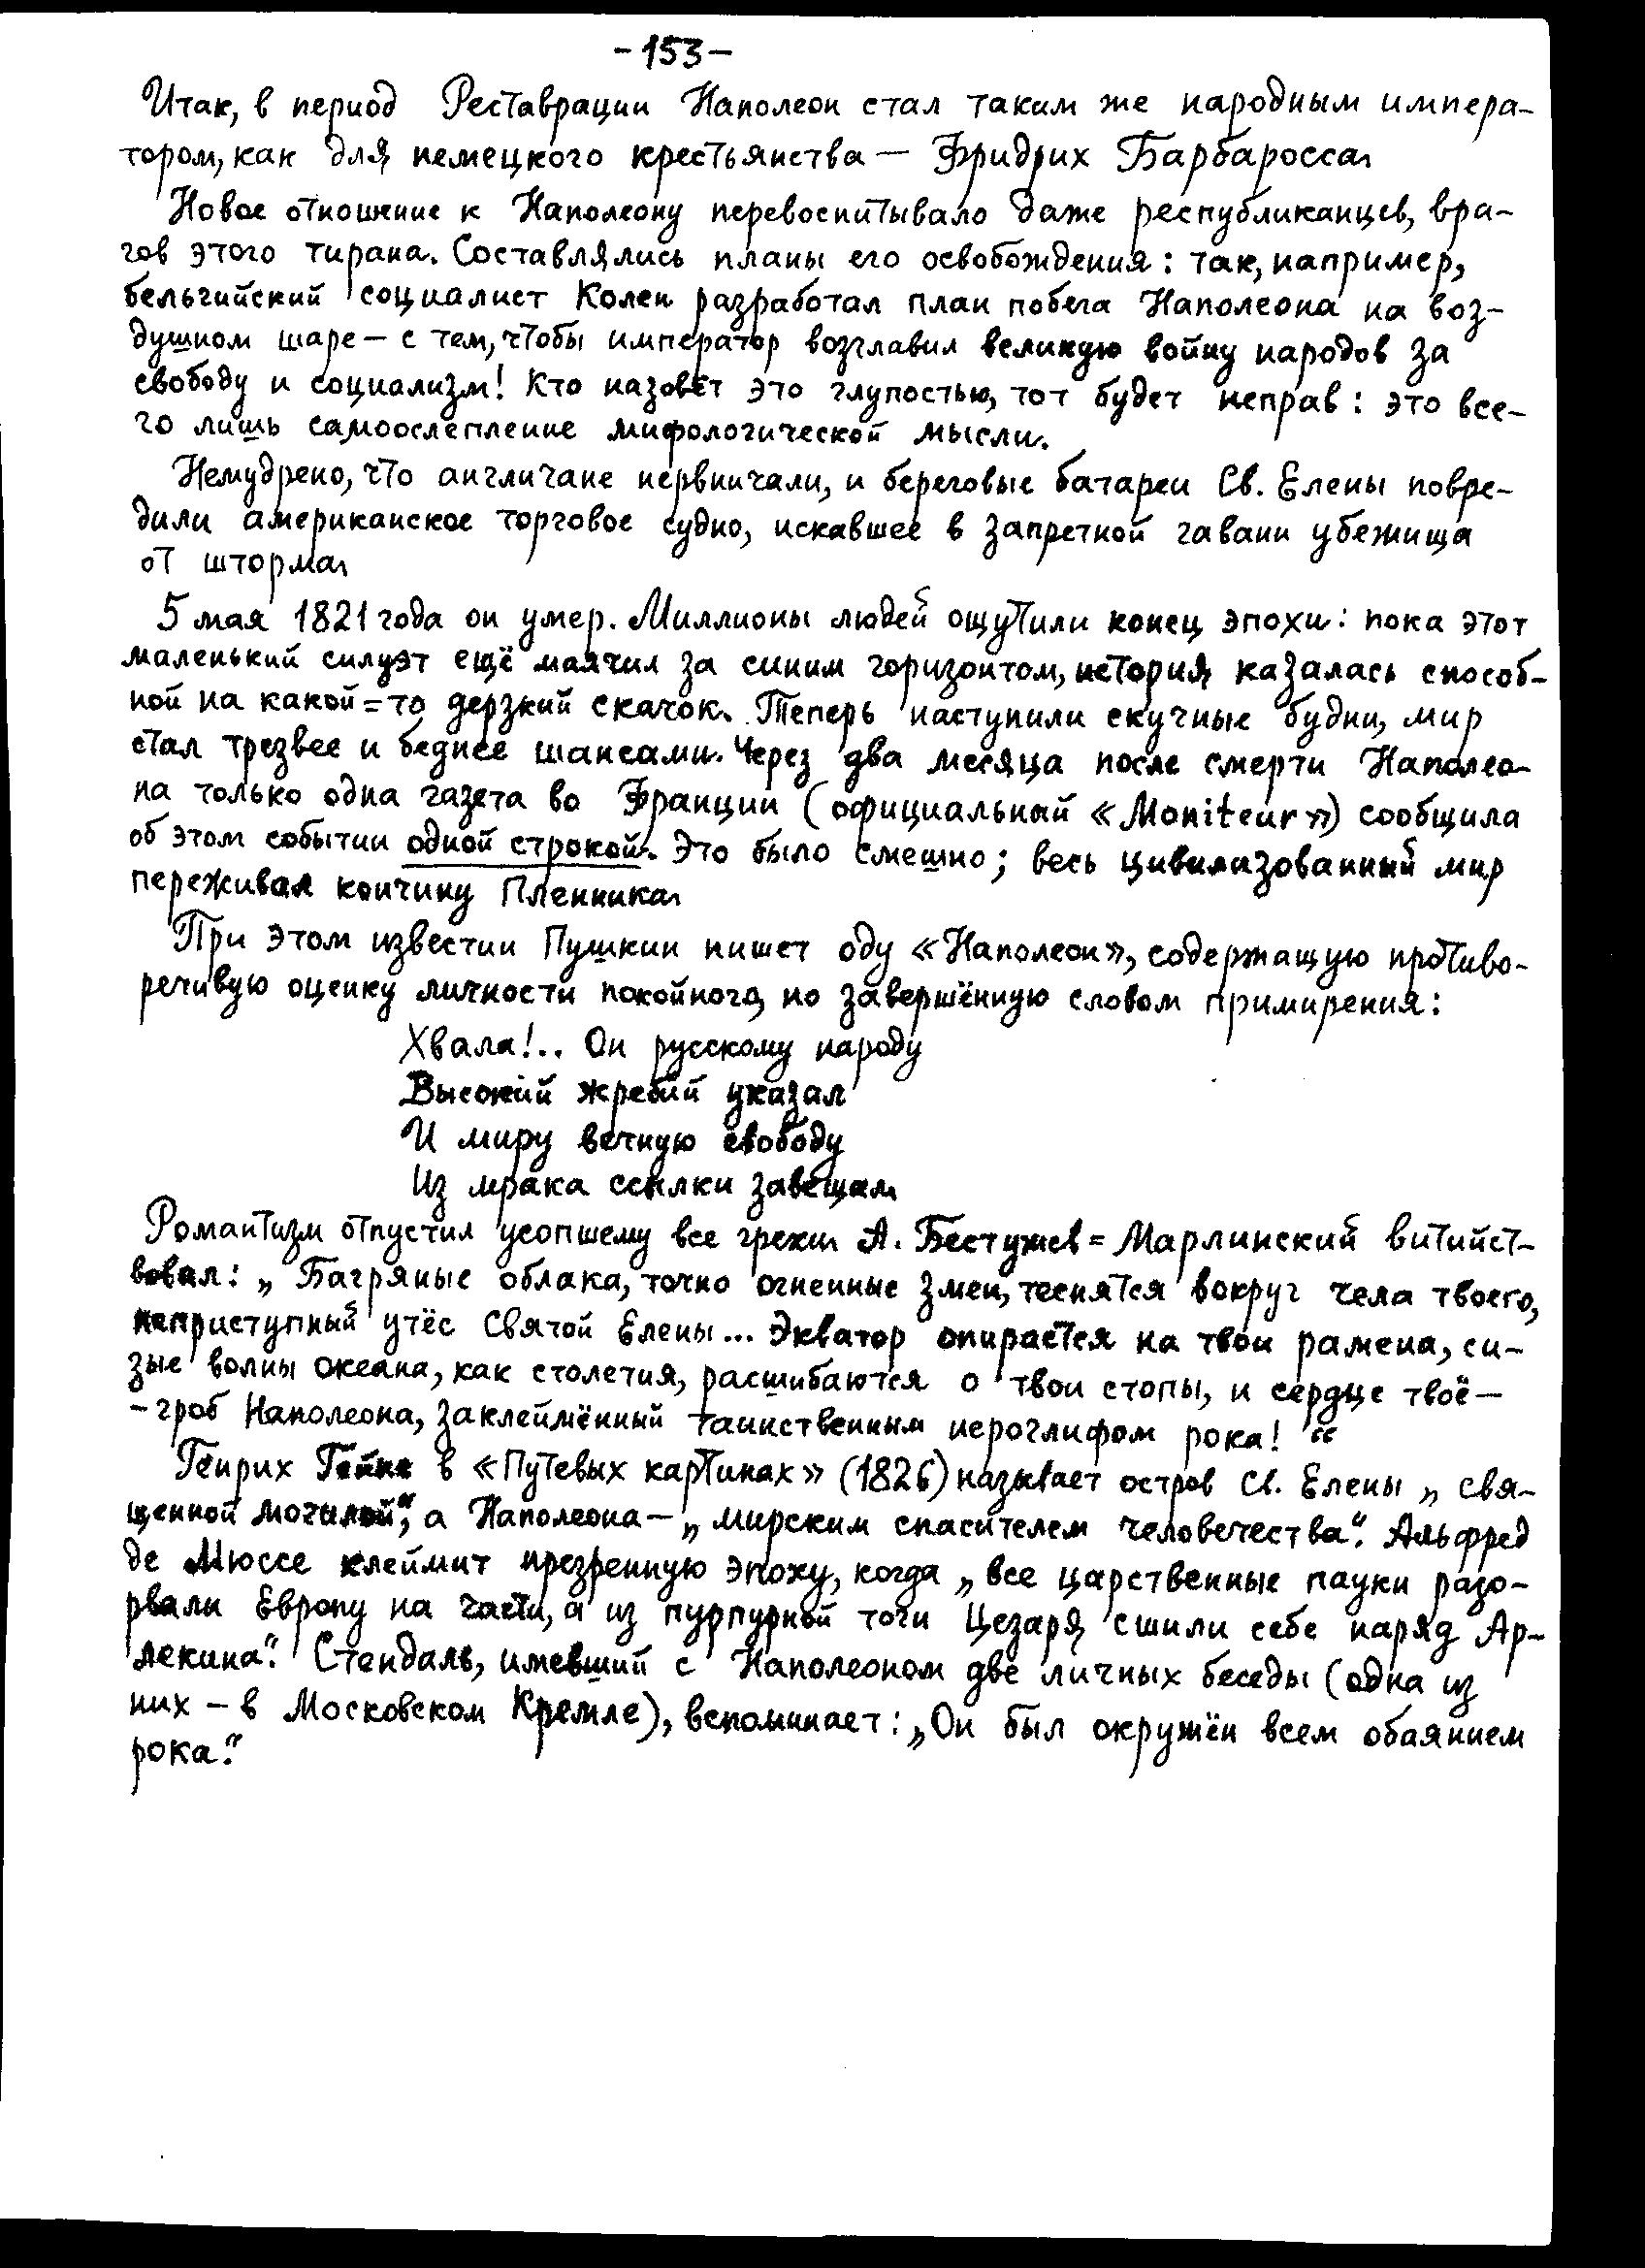 -153-
Итак, в период Реставрации Наполеон стал таким же народным импера-
тором, как для немецкого крестьянства — Фридрих Барбаросса.
Новое отношение к Наполеону перевоспитывало даже республиканцев, вра-
гов этого тирана. Составлялись планы его освобождения: так, например,
бельгийский социалист Колен разработал план побега Наполеона на воз-
душном шаре — с тем, чтобы император возглавил великую войну народов за
свободу и социализм! Кто назовёт это глупостью, тот будет неправ: это все-
го лишь самоослепление мифологической мысли.
Немудрено, что англичане нервничали, и береговые батареи Св. Елены повре-
дили американское торговое судно, искавшее в запретной гавани убежища
от шторма.
5 мая 1821 года он умер. Миллионы людей ощутили конец эпохи: пока этот
маленький силуэт ещё маячил за синим горизонтом, история казалась способ-
ной на какой=то дерзкий скачок. Теперь наступили скучные будни, мир
стал трезвее и беднее шансами. Через два месяца после смерти Наполео-
на только одна газета во Франции (официальный «Moniteur») сообщила
об этом событии одной строкой. Это было смешно; весь цивилизованный мир
переживал кончину Пленника.
При этом известии Пушкин пишет оду «Наполеон», содержащую противо-
речивую оценку личности покойного, но завершённую словом примирения:
Хвала!.. Он русскому народу
Высокий жребий указал
И миру вечную свободу
Из мрака ссылки завещал.
Романтизм отпустил усопшему все грехи. А. Бестужев=Марлинский витийст-
вовал: „Багряные облака, точно огненные змеи, теснятся вокруг чела твоего,
неприступный утёс Святой Елены... Экватор опирается на твои рамена, си-
зые волны океана, как столетия, расшибаются о твои стопы, и сердце твоё —
- гроб Наполеона, заклеймённый таинственным иероглифом рока!“
Генрих Гейне в «Путевых картинах» (1826) называет остров Св. Елены „свя-
щенной могилой“, а Наполеона — „мирским спасителем человечества“. Альфред
де Мюссе клеймит презренную эпоху, когда „все царственные пауки разо-
рвали Европу на части, а из пурпурной тоги Цезаря сшили себе наряд Ар-
лекина“. Стендаль, имевший с Наполеоном две личных беседы (одна из
них — в Московском Кремле), вспоминает: „Он был окружён всем обаянием
рока“.